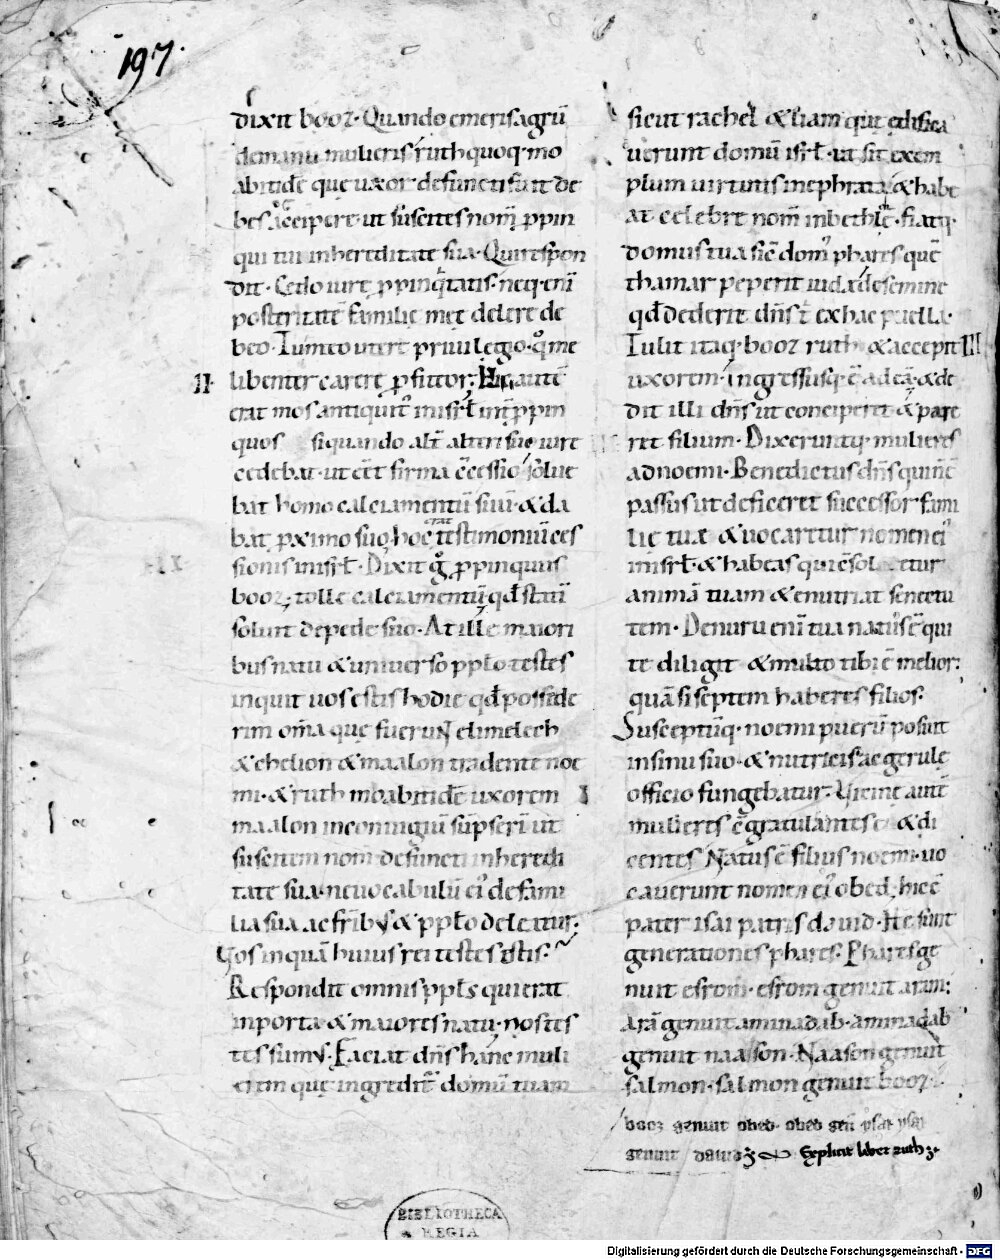 197.
dixit booz. Quando emeris agrū
de manu mulieris. ruth quoq; mo
abitidē que uxor defuncti fuit de
bes accipere. ut suscites nom̄ ꝓpin
qui tui in hereditate sua. Qui respon
dit. Cedo iure ꝓpinqͥtatis. neq; eni
posteritatē familie mee delere de
beo. Tu meo utere priuilegio. qͦ me
libenter carere ꝓfiteor. Hic autē
II.
erat mos antiquitꝰ in isrł int̄ ꝓpin
quos siquando alt̄ alteri suo iure
cedebat. ut eēt firma cēcessio. solue
bat homo calciamentū suū. & da
bat ꝓximo suo. hoc erat testimoniū ces
sionis in isrł. Dixit gͦ ꝓpinquus
booz. tolle calciamentū. qđ statī
soluit de pede suo. At ille maiori
bus natu & uniuerso ppło testes
inquit uos estis hodie qđ posside
rim om̄a que fuerunt elimelech
& chelion & maalon tradente noe
mi. & ruth moabitidē uxorem
maalon in coniugiū sūpserī ut
suscitem nom̄ defuncti in heredi
tate sua. ne uocabulū eiꝰ de fami
lia sua ac frīb; & ppło deleatur.
Uos inquā huius rei testes estis.
Respondit omnis ppłs qui erat
in porta. & maiores natu. nos tes
tes sumꝰ. Faciat dn̄s hanc muli
erem que ingreditͬ domū tuam
sicut rachel & liam que edifica
uerunt domū isrł. ut sit exem
plum uirtutis in ephrata. & habe
at celebre nom̄ in bethlē. fiatq;
domus tua sic domꝰ phares. quē
thamar peperit iudæ de semine
qđ dederit dn̄s t̄ ex hac puella.
Tulit itaq; booz ruth & accepit
III
uxorem. ingressusq; ē ad eā. & de
dit illi dn̄s ut conciperet & pare
ret filium. Dixeruntq; mulieres
ad noemi. Benedictus dn̄s qui n̄
passus ut deficeret successor fami
lie tuæ & uocaretur nomen eiꝰ
in isrł. & habeas qui cōsoletur
animā tuam & enutriat senectu
tem. De nuru eni tua natꝰ ē qui
te diligit & multo tibi ē melior.
quā si septem haberes filios.
Susceptūq; noemi puerū posuit
in sinu suo. & nutricis ac gerule
officio fungebatur. Uicine aut̄
mulieres cōgratulantes ei & di
centes Natus ē filius noemi. uo
cauerunt nomen eiꝰ obed. hic ē
pater isai patris dauid. He sunt
generationes phares. Phares ge
nuit esrom. esrom genuit aram.
arā genuit aminadab. aminadab
genuit naasson. Naason genuit
salmon. salmon genuit booz.
booz genuit obed. obed geń ysay ysay
genuit dauid Explicit liber ruth
BIBLIOTHECA
REGIA
Digitalisierung gefördert durch die Deutsche Forschungsgemeinschaft - DFG